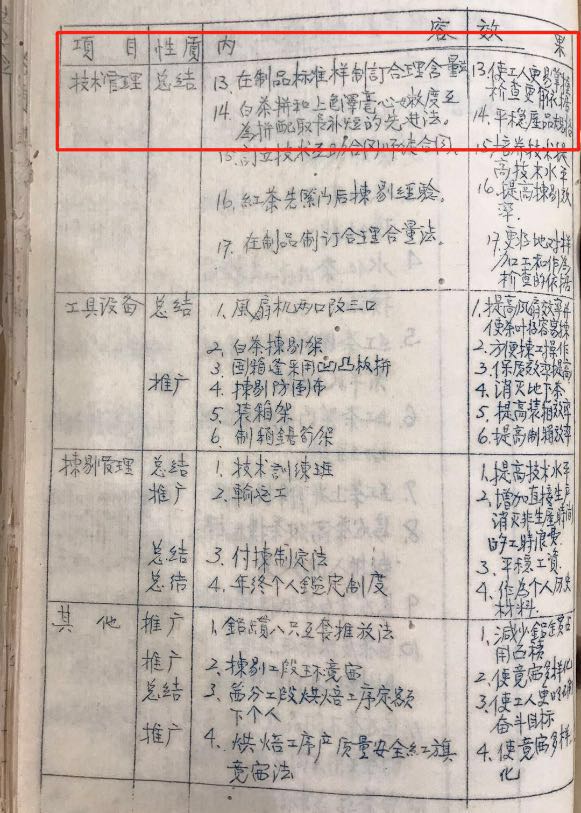 项 目 性质 内 容 效 果
技术管理 总结 13. 在制品标准样制訂合理含量法 13. 使工人更易掌握
检查更有依据
14. 白茶拼和上色澤毫心嫩度互 14. 平穩産品規格
為拼配取長补短的先進法。
15. 訂立技术互助合同师徒合同。 15. 培养技术
高技术水平
16. 紅茶先緊门后揀剔経驗。 16. 提高揀剔效
率.
17. 在制品制订合理合量法。 17. 更好地对样
加工和作為
检查的依据
工具设备 总结 1. 風扇机两口改三口 1. 提高风扇效率
使茶叶
2. 白茶揀剔架 2. 方便揀工操作
3. 圆箱 采用凹凸板拼 3. 保质效率提高
推广 4. 揀剔防围布 4. 消灭地下茶
5. 装箱架 5. 提高装箱效率
6. 制箱 架 6. 提高制箱效率
揀剔管理 总结 1. 技术訓練班 1. 提高技术水平
推广 2. 輸送工 2. 增加直接生产
消灭非生産時间
的工時浪费
总结 3. 付揀制定法 3. 平穩工資.
总结 4. 年終个人鑑定制度 4. 作為个人历史
材料.
其 他 推广 1. 鋁 八只五套堆放法 1. 减少鋁 占
用面積
推广 2. 揀剔工段环境 2. 使竞赛多样化
总结 3. 部分工段烘焙工序定額 3. 使工人更明确
下个人 奋斗目标
推广 4. 烘焙工序产质量安全紅旗 4. 使竞赛多样
竞赛法 化